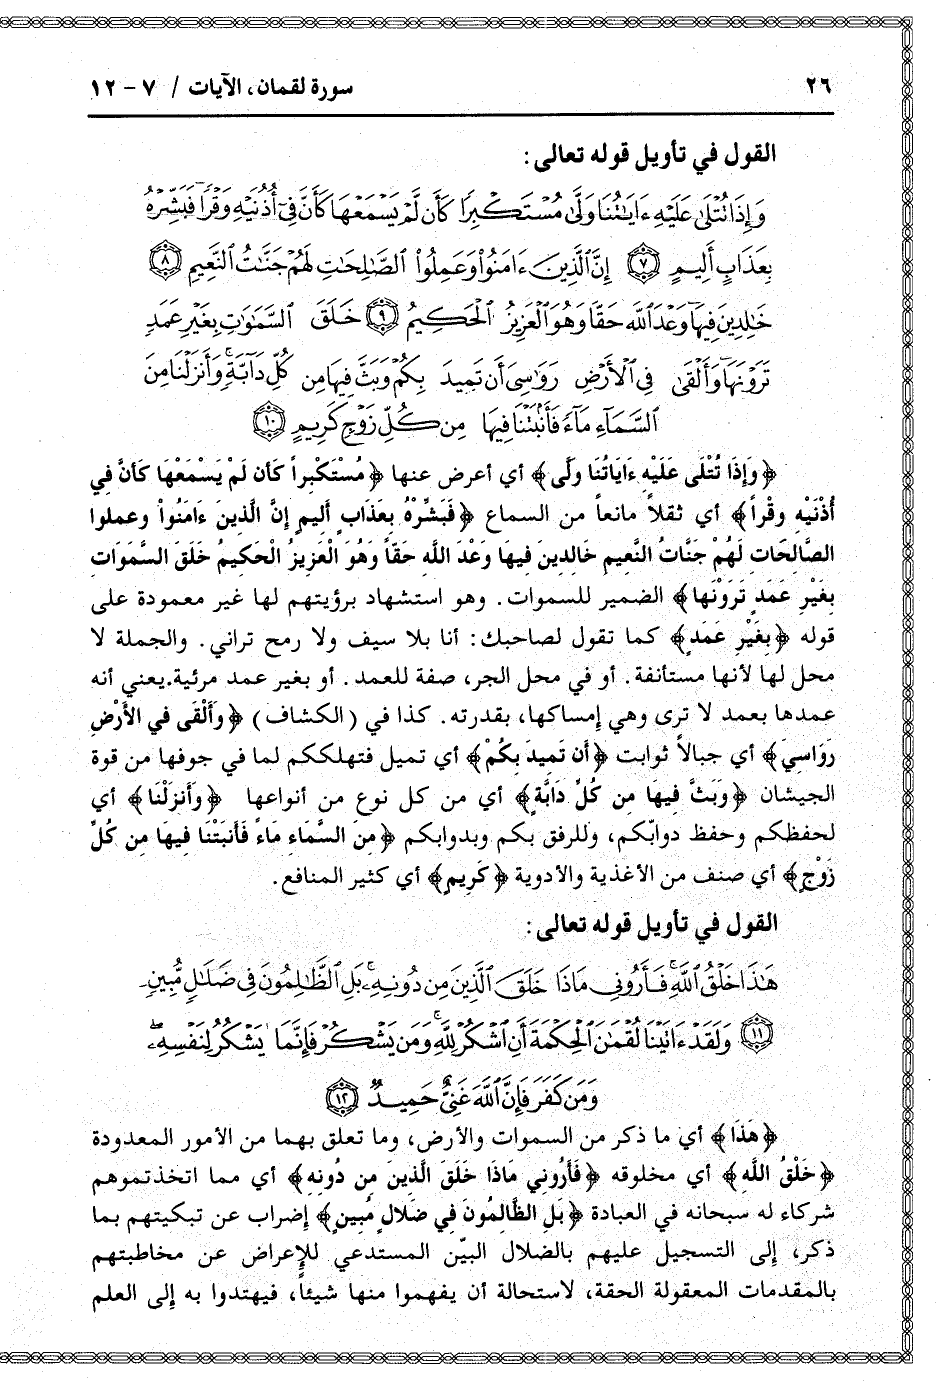 ٢٦ سورة لقمان، الآيات / ٧ - ١٢
القول في تأويل قوله تعالى:
وَإِذَا تُتْلَىٰ عَلَيْهِ ءَايَٰتُنَا وَلَّىٰ مُسْتَكْبِرًا كَأَن لَّمْ يَسْمَعْهَا كَأَنَّ فِىٓ أُذُنَيْهِ وَقْرًا فَبَشِّرْهُ
بِعَذَابٍ أَلِيمٍ ٧ إِنَّ ٱلَّذِينَ ءَامَنُوا۟ وَعَمِلُوا۟ ٱلصَّٰلِحَٰتِ لَهُمْ جَنَّٰتُ ٱلنَّعِيمِ ٨
خَٰلِدِينَ فِيهَا وَعْدَ ٱللَّهِ حَقًّا وَهُوَ ٱلْعَزِيزُ ٱلْحَكِيمُ ٩ خَلَقَ ٱلسَّمَٰوَٰتِ بِغَيْرِ عَمَدٍ
تَرَوْنَهَا وَأَلْقَىٰ فِى ٱلْأَرْضِ رَوَٰسِىَ أَن تَمِيدَ بِكُمْ وَبَثَّ فِيهَا مِن كُلِّ دَآبَّةٍ وَأَنزَلْنَا مِنَ
ٱلسَّمَآءِ مَآءً فَأَنۢبَتْنَا فِيهَا مِن كُلِّ زَوْجٍ كَرِيمٍ ١٠
﴿وَإِذَا تُتْلَى عَلَيْهِ ءَايَاتُنَا وَلَّى﴾ أي أعرض عنها ﴿مُسْتَكْبِراً كَأَن لَمْ يَسْمَعْهَا كَأنَّ فِي
أُذْنَيْهِ وَقْراً﴾ أي ثقلاً مانعاً من السماع ﴿فَبَشِّرْهُ بِعَذَابٍ أَليمٍ إِنَّ الَّذينَ ءَامَنُواْ وعملوا
الصَّالِحَاتِ لَهُمْ جَنَّاتُ النَّعيمِ خَالِدينَ فِيهَا وَعْدَ اللَّهِ حَقّاً وَهُوَ الْعَزِيزُ الْحَكِيمُ خَلَقَ السَّمَوَاتِ
بِغَيْرِ عَمَدٍ تَرَوْنَها﴾ الضمير للسموات. وهو استشهاد برؤيتهم لها غير معمودة على
قوله ﴿بِغَيْرِ عَمَدٍ﴾ كما تقول لصاحبك: أنا بلا سيف ولا رمح تراني. والجملة لا
محل لها لأنها مستأنفة. أو في محل الجر، صفة للعمد. أو بغير عمد مرئية.يعني أنه
عمدها بعمد لا ترى وهي إمساكها، بقدرته. كذا في (الكشاف) ﴿وأَلْقَى في الأَرْضِ
رَوَاسِيَ﴾ أي جبالاً ثوابت ﴿أَن تَميدَ بِكُمْ﴾ أي تميل فتهلككم لما في جوفها من قوة
الجيشان ﴿وَبَثَّ فِيهَا مِن كُلِّ دَابَّةٍ﴾ أي من كل نوع من أنواعها ﴿وأنزلْنَا﴾ أي
لحفظكم وحفظ دوابّكم، وللرفق بكم وبدوابكم ﴿مِنَ السَّمَاءِ مَاءً فَأَنبَتْنَا فِيهَا مِن كُلِّ
زَوْجٍ﴾ أي صنف من الأغذية والأدوية ﴿كَرِيمٍ﴾ أي كثير المنافع.
القول في تأويل قوله تعالى:
هَٰذَا خَلْقُ ٱللَّهِ فَأَرُونِى مَاذَا خَلَقَ ٱلَّذِينَ مِن دُونِهِۦ بَلِ ٱلظَّٰلِمُونَ فِى ضَلَٰلٍ مُّبِينٍ
١١ وَلَقَدْ ءَاتَيْنَا لُقْمَٰنَ ٱلْحِكْمَةَ أَنِ ٱشْكُرْ لِلَّهِ وَمَن يَشْكُرْ فَإِنَّمَا يَشْكُرُ لِنَفْسِهِۦ
وَمَن كَفَرَ فَإِنَّ ٱللَّهَ غَنِىٌّ حَمِيدٌ ١٢
﴿هَذَا﴾ أي ما ذكر من السموات والأرض، وما تعلق بهما من الأمور المعدودة
﴿خَلْقُ اللَّهِ﴾ أي مخلوقه ﴿فَأَرُوني مَاذَا خَلَقَ الَّذينَ مِن دُونِهِ﴾ أي مما اتخذتموهم
شركاء له سبحانه في العبادة ﴿بَلِ الظَّالِمُونَ فِي ضَلالٍ مُّبينٍ﴾ إضراب عن تبكيتهم بما
ذكر، إلى التسجيل عليهم بالضلال البيّن المستدعي للإعراض عن مخاطبتهم
بالمقدمات المعقولة الحقة، لاستحالة أن يفهموا منها شيئاً، فيهتدوا به إلى العلم